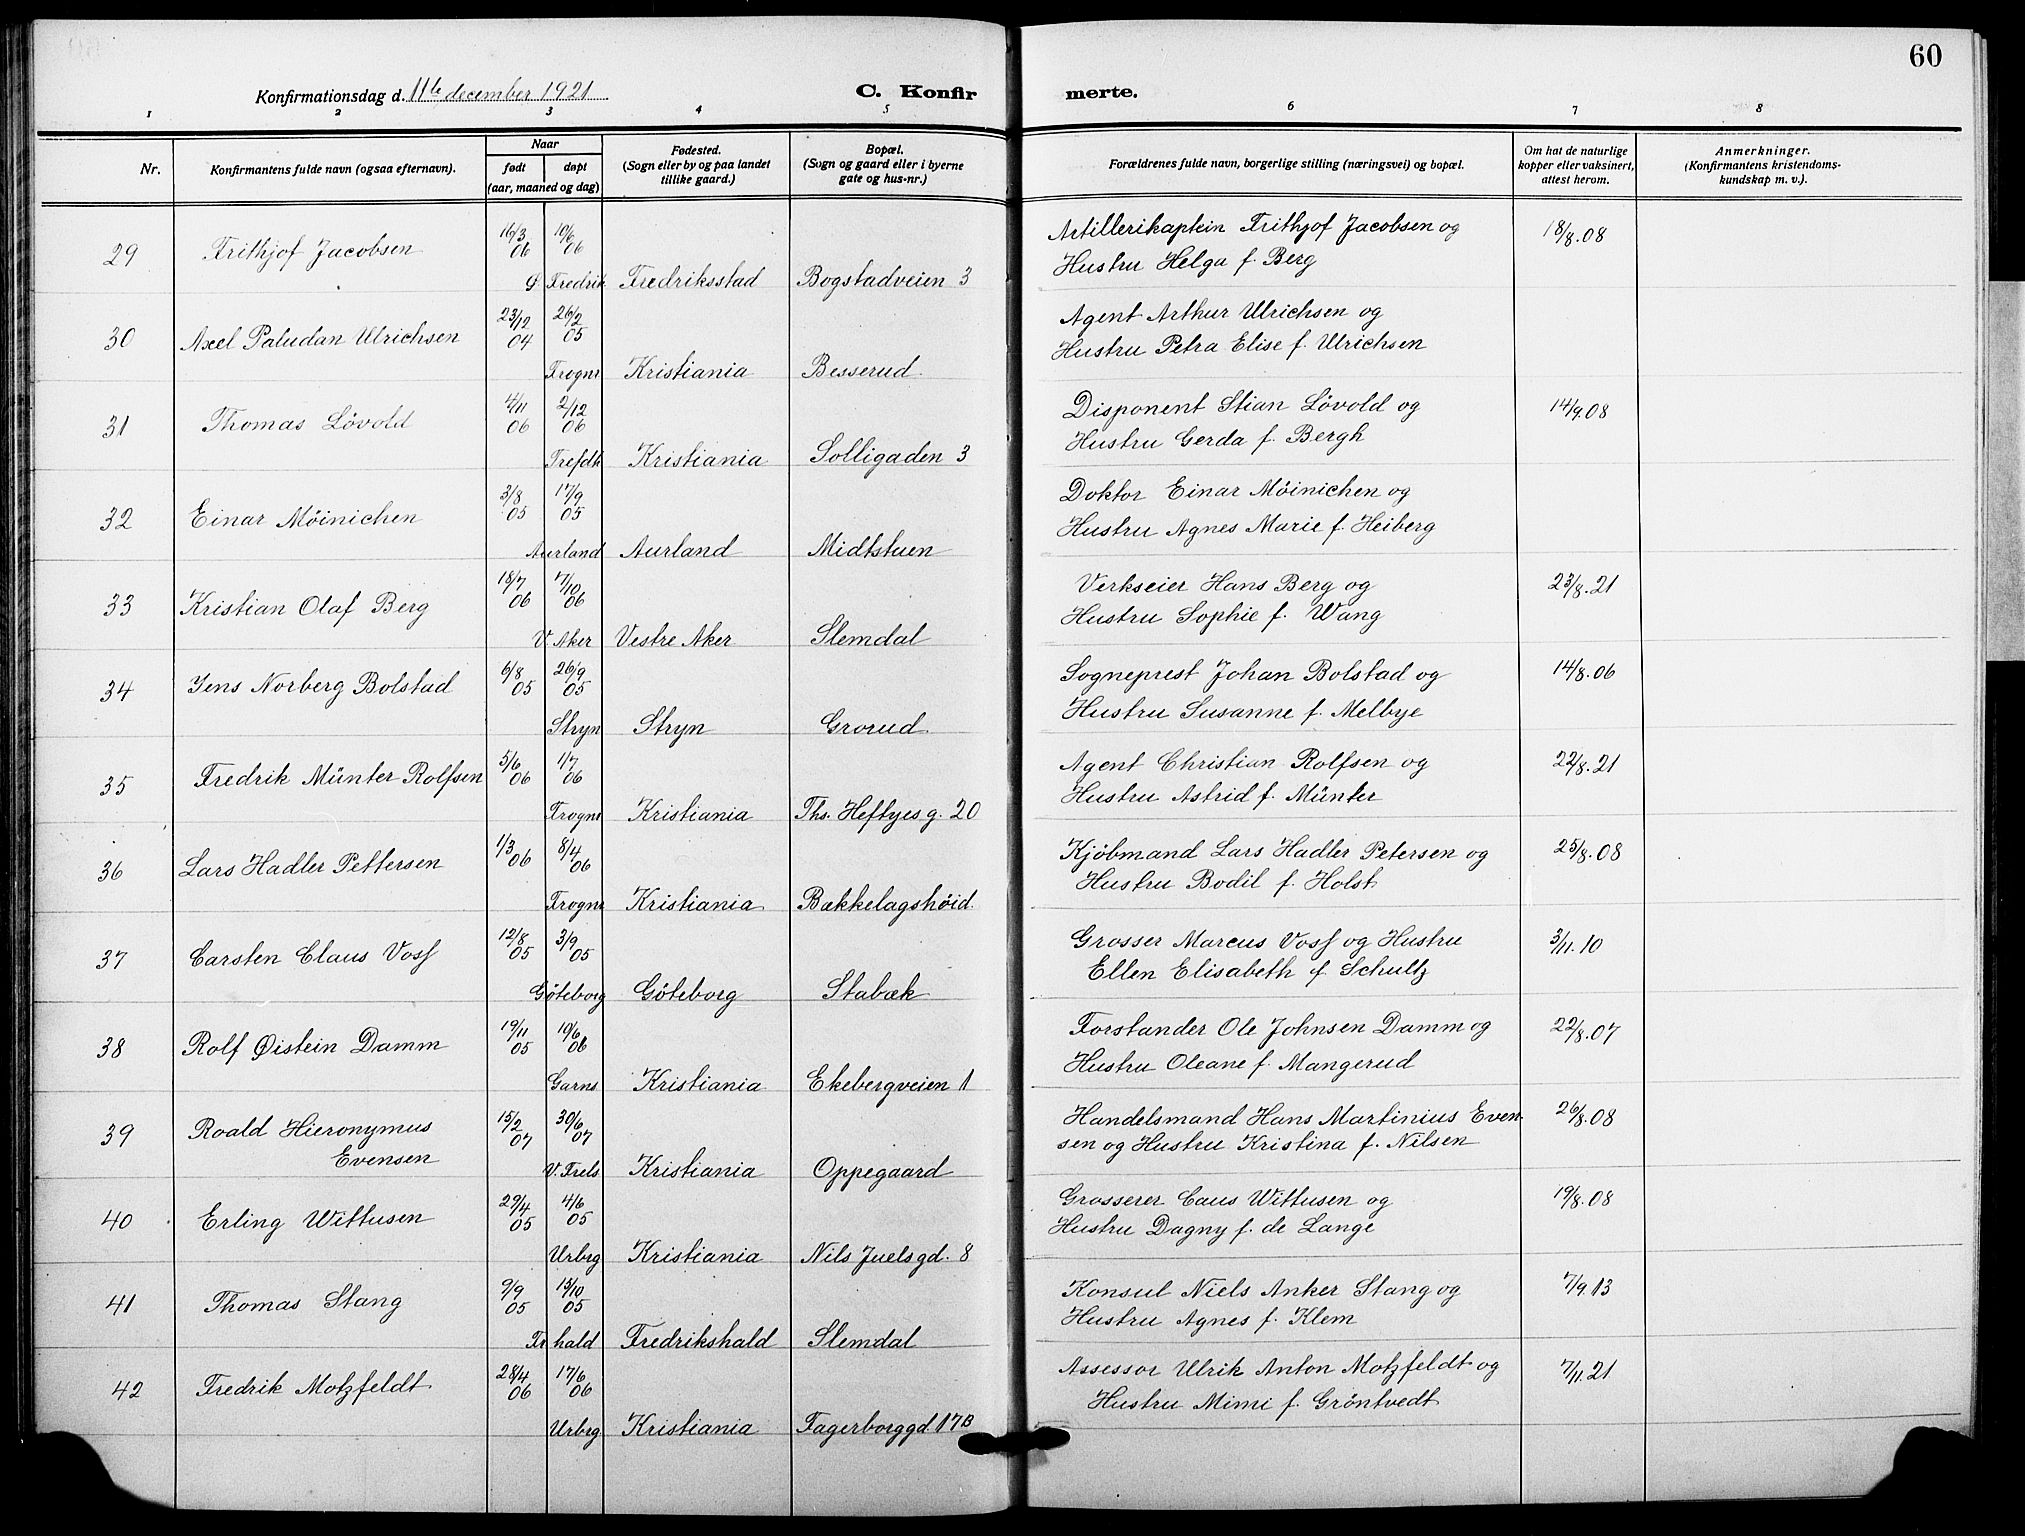 60
Konfirmationsdag d. 11te december 1921
C. Konfirmerte.
1 2 3 4 5 6 7 8
Nr.
Konfirmantens fulde navn (ogsaa efternavn).
Naar
født døpt
(aar, maaned og dag)
Fødested.
(Sogn eller by og paa landet
tillike gaard.)
Bopæl.
(Sogn og gaard eller i byerne
gate og hus-nr.)
Forældrenes fulde navn, borgerlige stilling (næringsvei) og bopæl.
Om hat de naturlige
kopper eller vaksinert,
attest herom.
Anmerkninger.
(Konfirmantens kristendoms-
kundskap m. v.).
29 Frithjof Jacobsen 16/3 06 10/6 06
G. Fredrik Fredriksstad Bogstadveien 3
Artillerikaptein Frithjof Jacobsen og 18/8.08
Hustru Helga f. Berg
30 Axel Paludan Ulrichsen 23/12 04 26/2 05
Frogne Kristiania Besserud
Agent Arthur Ulrichsen og
Hustru Petra Elise f. Ulrichsen
31 Thomas Lövold 4/11 06 2/12 06
Trefdk Kristiania Solligaden 3
Disponent Stian Lövold og 14/9.08
Hustru Gerda f. Bergh
32 Einar Möinichen 3/8 05 17/9 05
Aurland Aurland Midtstuen
Doktor Einar Möinichen og
Hustru Agnes Marie f. Heiberg
33 Kristian Olaf Berg 18/7 06 7/10 06
V. Aker Vestre Aker Slemdal
Verkseier Hans Berg og 23/8.21
Hustru Sophie f. Wang
34 Jens Norberg Bolstad 6/8 05 26/9 05
Stryn Stryn Grorud
Sogneprest Johan Bolstad og 14/8.06
Hustru Susanne f. Melbye
35 Fredrik Münter Rolfsen 5/6 06 1/7 06
Frogne Kristiania Ths. Heftyes g. 20
Agent Christian Rolfsen og 22/8.21
Hustru Astrid f. Münter
36 Lars Hadler Pettersen 1/3 06 8/4 06
Frogne Kristiania Bækkelagshöid.
Kjöbmand Lars Hadler Petersen og 25/8.08
Hustru Bodil f. Holst
37 Carsten Claus Voss 12/8 05 3/9 05
Göteborg Göteborg Stabæk
Grosser Marcus Voss og Hustru 3/11.10
Ellen Elisabeth f. Schultz
38 Rolf Øistein Damm 19/11 05 10/6 06
Garns Kristiania Ekebergveien 1
Forstander Ole Johnsen Damm og 22/8.07
Hustru Oleane f. Mangerud
39 Roald Hieronymus 15/2 07 30/6 07
Evensen
V. Frels Kristiania Oppegaard
Handelsmand Hans Martinius Even- 26/8.08
sen og Hustru Kristina f. Nilsen
40 Erling Wittusen 29/4 05 4/6 05
Urbrg Kristiania Nils Juelsgd. 8
Grosserer Caus Wittusen og 19/8.08
Hustru Dagny f. de Lange
41 Thomas Stang 9/9 05 15/10 05
Fr hald Fredrikshald Slemdal
Konsul Niels Anker Stang og 7/9.13
Hustru Agnes f. Klem
42 Fredrik Motzfeldt 28/4 06 17/6 06
Urbrg Kristiania Fagerborggd. 17B
Assessor Ulrik Anton Motzfeldt og 7/11.21
Hustru Mimi f. Gröntvedt